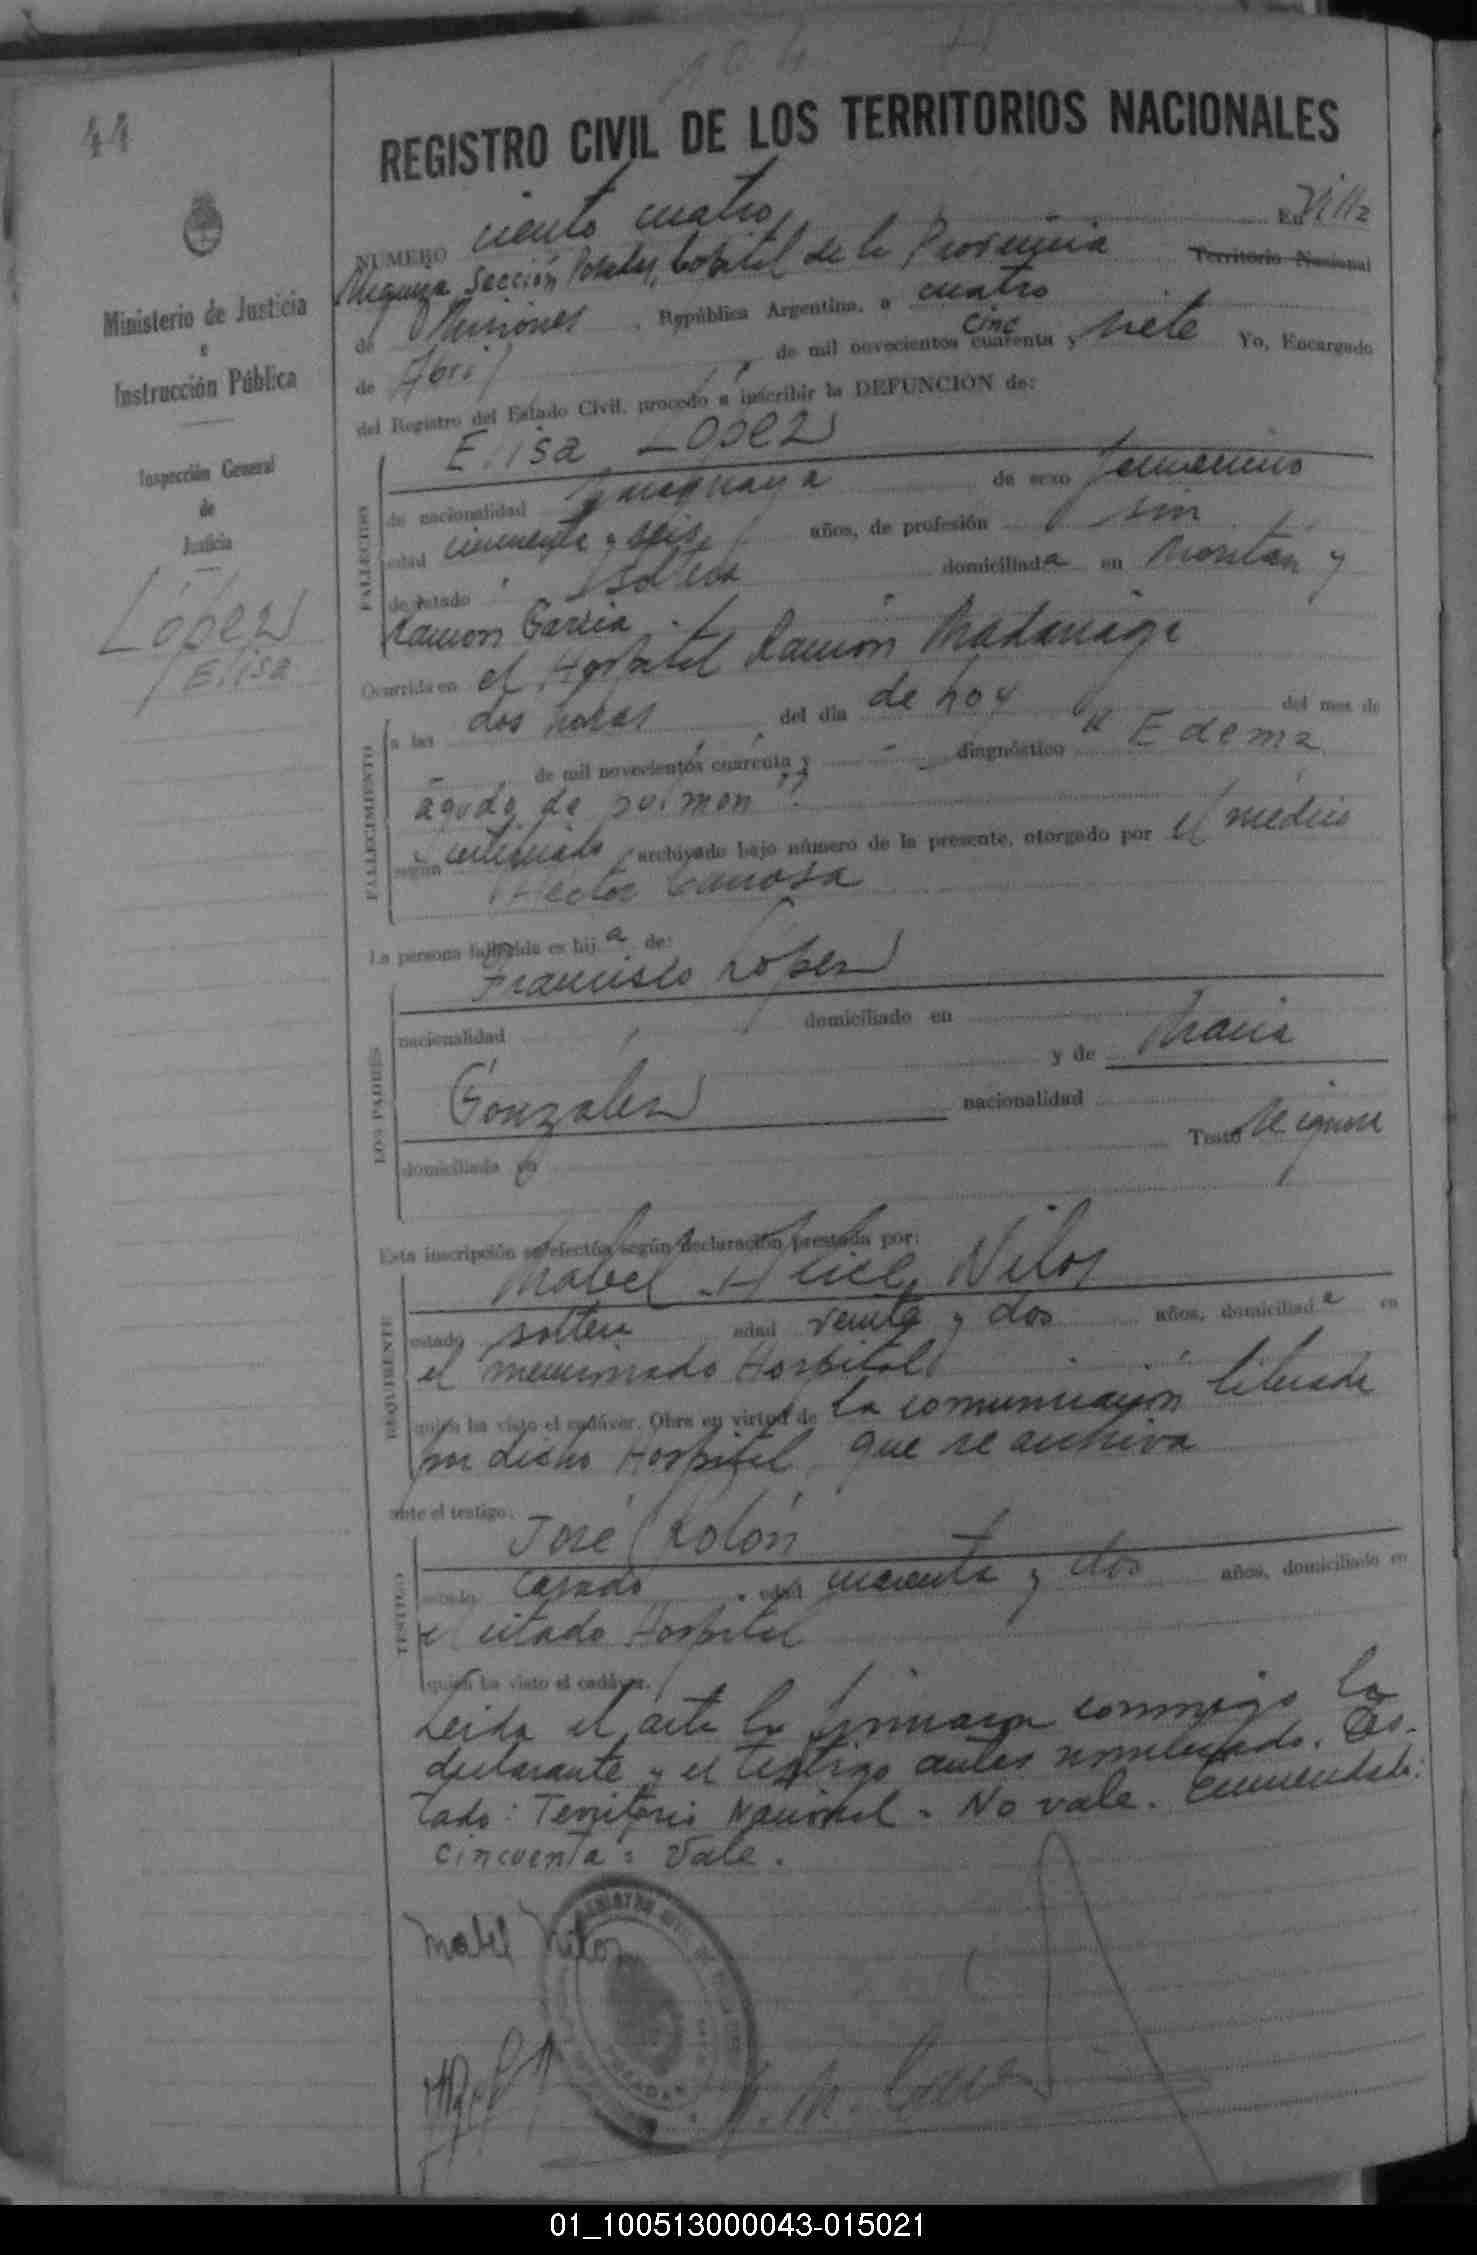 104 H
44
REGISTRO CIVIL DE LOS TERRITORIOS NACIONALES
NUMERO ciento cuatro En Villa
Sección Posadas, Capital de la Provincia Territorio Nacional
de Misiones, República Argentina, a cuatro
de Abril de mil novecientos cincuenta y siete Yo, Encargado
del Registro del Estado Civil, procedo a inscribir la DEFUNCIÓN de:
Ministerio de Justicia
e
Instrucción Pública
Inspección General
de
Justicia
López
Elisa
FALLECIDO
Elisa Lopez
de nacionalidad paraguaya de sexo femenino
edad cincuenta y seis años, de profesión sin
de estado soltera domiciliada en Montán y
Ramon Garcia.
Ocurrida en el Hospital Ramón Madariaga
FALLECIMIENTO
a las dos horas del día de hoy del mes de
- de mil novecientos cuarenta y - diagnóstico "Edema
agudo de pulmón".
según certificado archivado bajo número de la presente, otorgado por el médico
Hector Canosa
La persona fallecida es hija de:
LOS PADRES
Francisco López
nacionalidad domiciliado en
y de Maria
González nacionalidad
domiciliada en Testó Se ignora
Esta inscripción se efectúa según declaración prestada por:
REQUIRENTE
Mabel Alice Nilos
estado soltera edad veinte y dos años, domiciliada en
el mencionado Hospital
quien ha visto el cadáver. Obra en virtud de la comunicación librada
por dicho Hospital, que se archiva
ante el testigo:
TESTIGO
José Rolón
estado casado, edad cuarenta y dos años, domiciliado en
el citado Hospital
quien ha visto el cadáver.
Leida el acta la firmaron conmigo la
declarante y el testigo antes nombrado. Tes-
tado: Territorio Nacional - No vale. Enmendado:
cincuenta: Vale.
Mabel Nilos
01_100513000043-015021